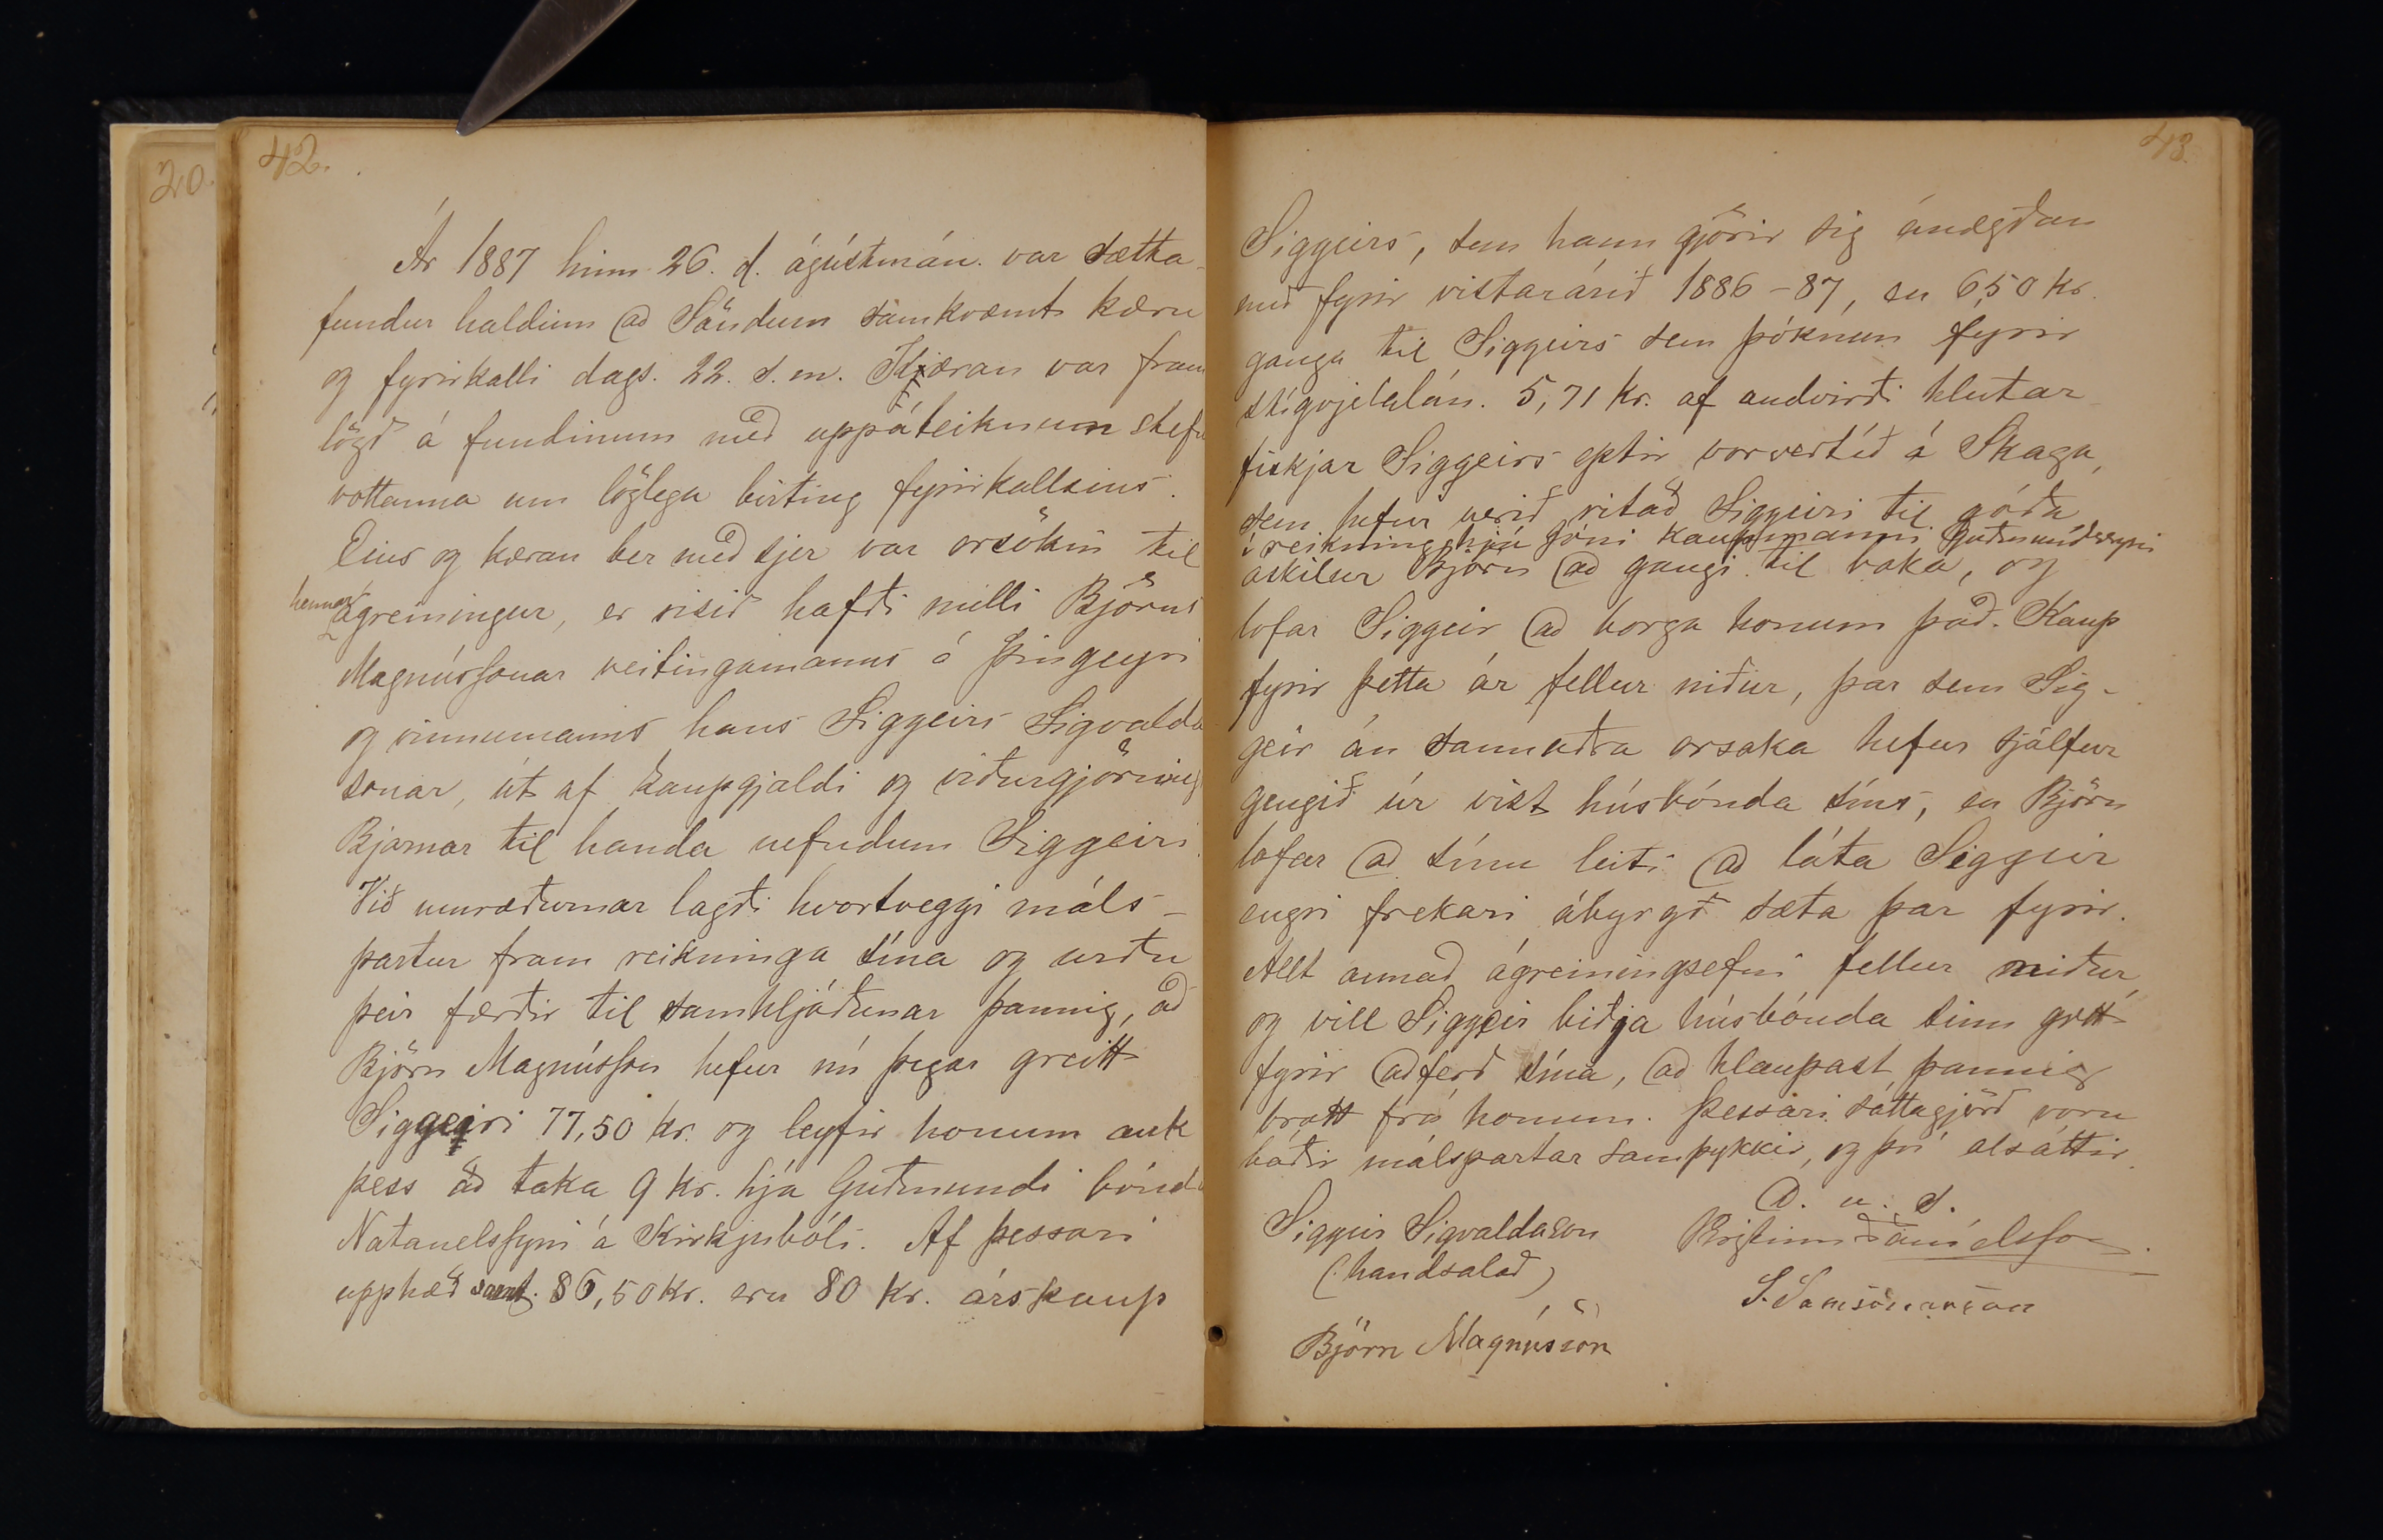 20.
42.
Ár 1887 hinn 26. d. ágústmán. var sætta-
fundur haldinn að Söndum samkvæmt kæru
og fyrirkalli dags. 22. s. m. Kæran var fram
lögð á fundinum með uppáteiknum stefnu
vottanna um löglega birting fyrirkallsins.
Eins og kæran ber með sjer var orsökin til
hennar ágreiningur, er risið hafði milli Björns
Magnússonar veitingamanns á Þingeyri
og vinnumanns hans Siggeirs Sigvalda
sonar, út af kaupgjaldi og viðurgjörning
Bjarnar til handa nefndum Siggeiri.
Við umræðurnar lagði hvortveggi máls-
partur fram reikninga sína og urðu
þeir færðir til samhljóðunar þannig, að
Björn Magnússon hefur nú þegar greitt
Siggeiri 77,50 kr. og leyfir honum auk
þess að taka 9 kr. hjá Guðmundi bónda
Natanelssyni á Kirkjubóli. Af þessari
upphæð samt. 86,50 kr. eru 80 kr. árskaup
43.
Siggeirs, sem hann gjörir sig ánægðan
með fyrir vistarárið 1886-87, en 6,50 kr.
ganga til Siggeirs sem þóknun fyrir
stígvjelalán. 5,71 kr. af andvirði hlutar
fiskjar Siggeirs eptir vorvertíð á Skaga,
sem hefur verið ritað Siggeiri til góða
í reikning hjá Jóni kaupmanni Guðmundssyni
áskilur Björn að gangi til baka, og
lofar Siggeir að borga honum það. Kaup
fyrir þetta ár fellur niður, þar sem Sig-
geir án sannaðra orsaka hefur sjálfur
gengið úr vist húsbónda síns, en Björn
lofar að sínu leiti að láta Siggeir
engri frekari ábyrgð sæta þar fyrir.
Allt annað ágreiningsefni fellur niður,
og vill Siggeir biðja húsbónda sinn gott
fyrir aðferð sína, að hlaupast þannig
bratt frá honum. Þessari sáttagjörð voru
báðir málspartar samþykkir, og því alsáttir.
D. u. s.
Siggeir Sigvaldason
(handsalað)
Björn Magnússon
Kristinn Daníelsson.
S. Samsonarson